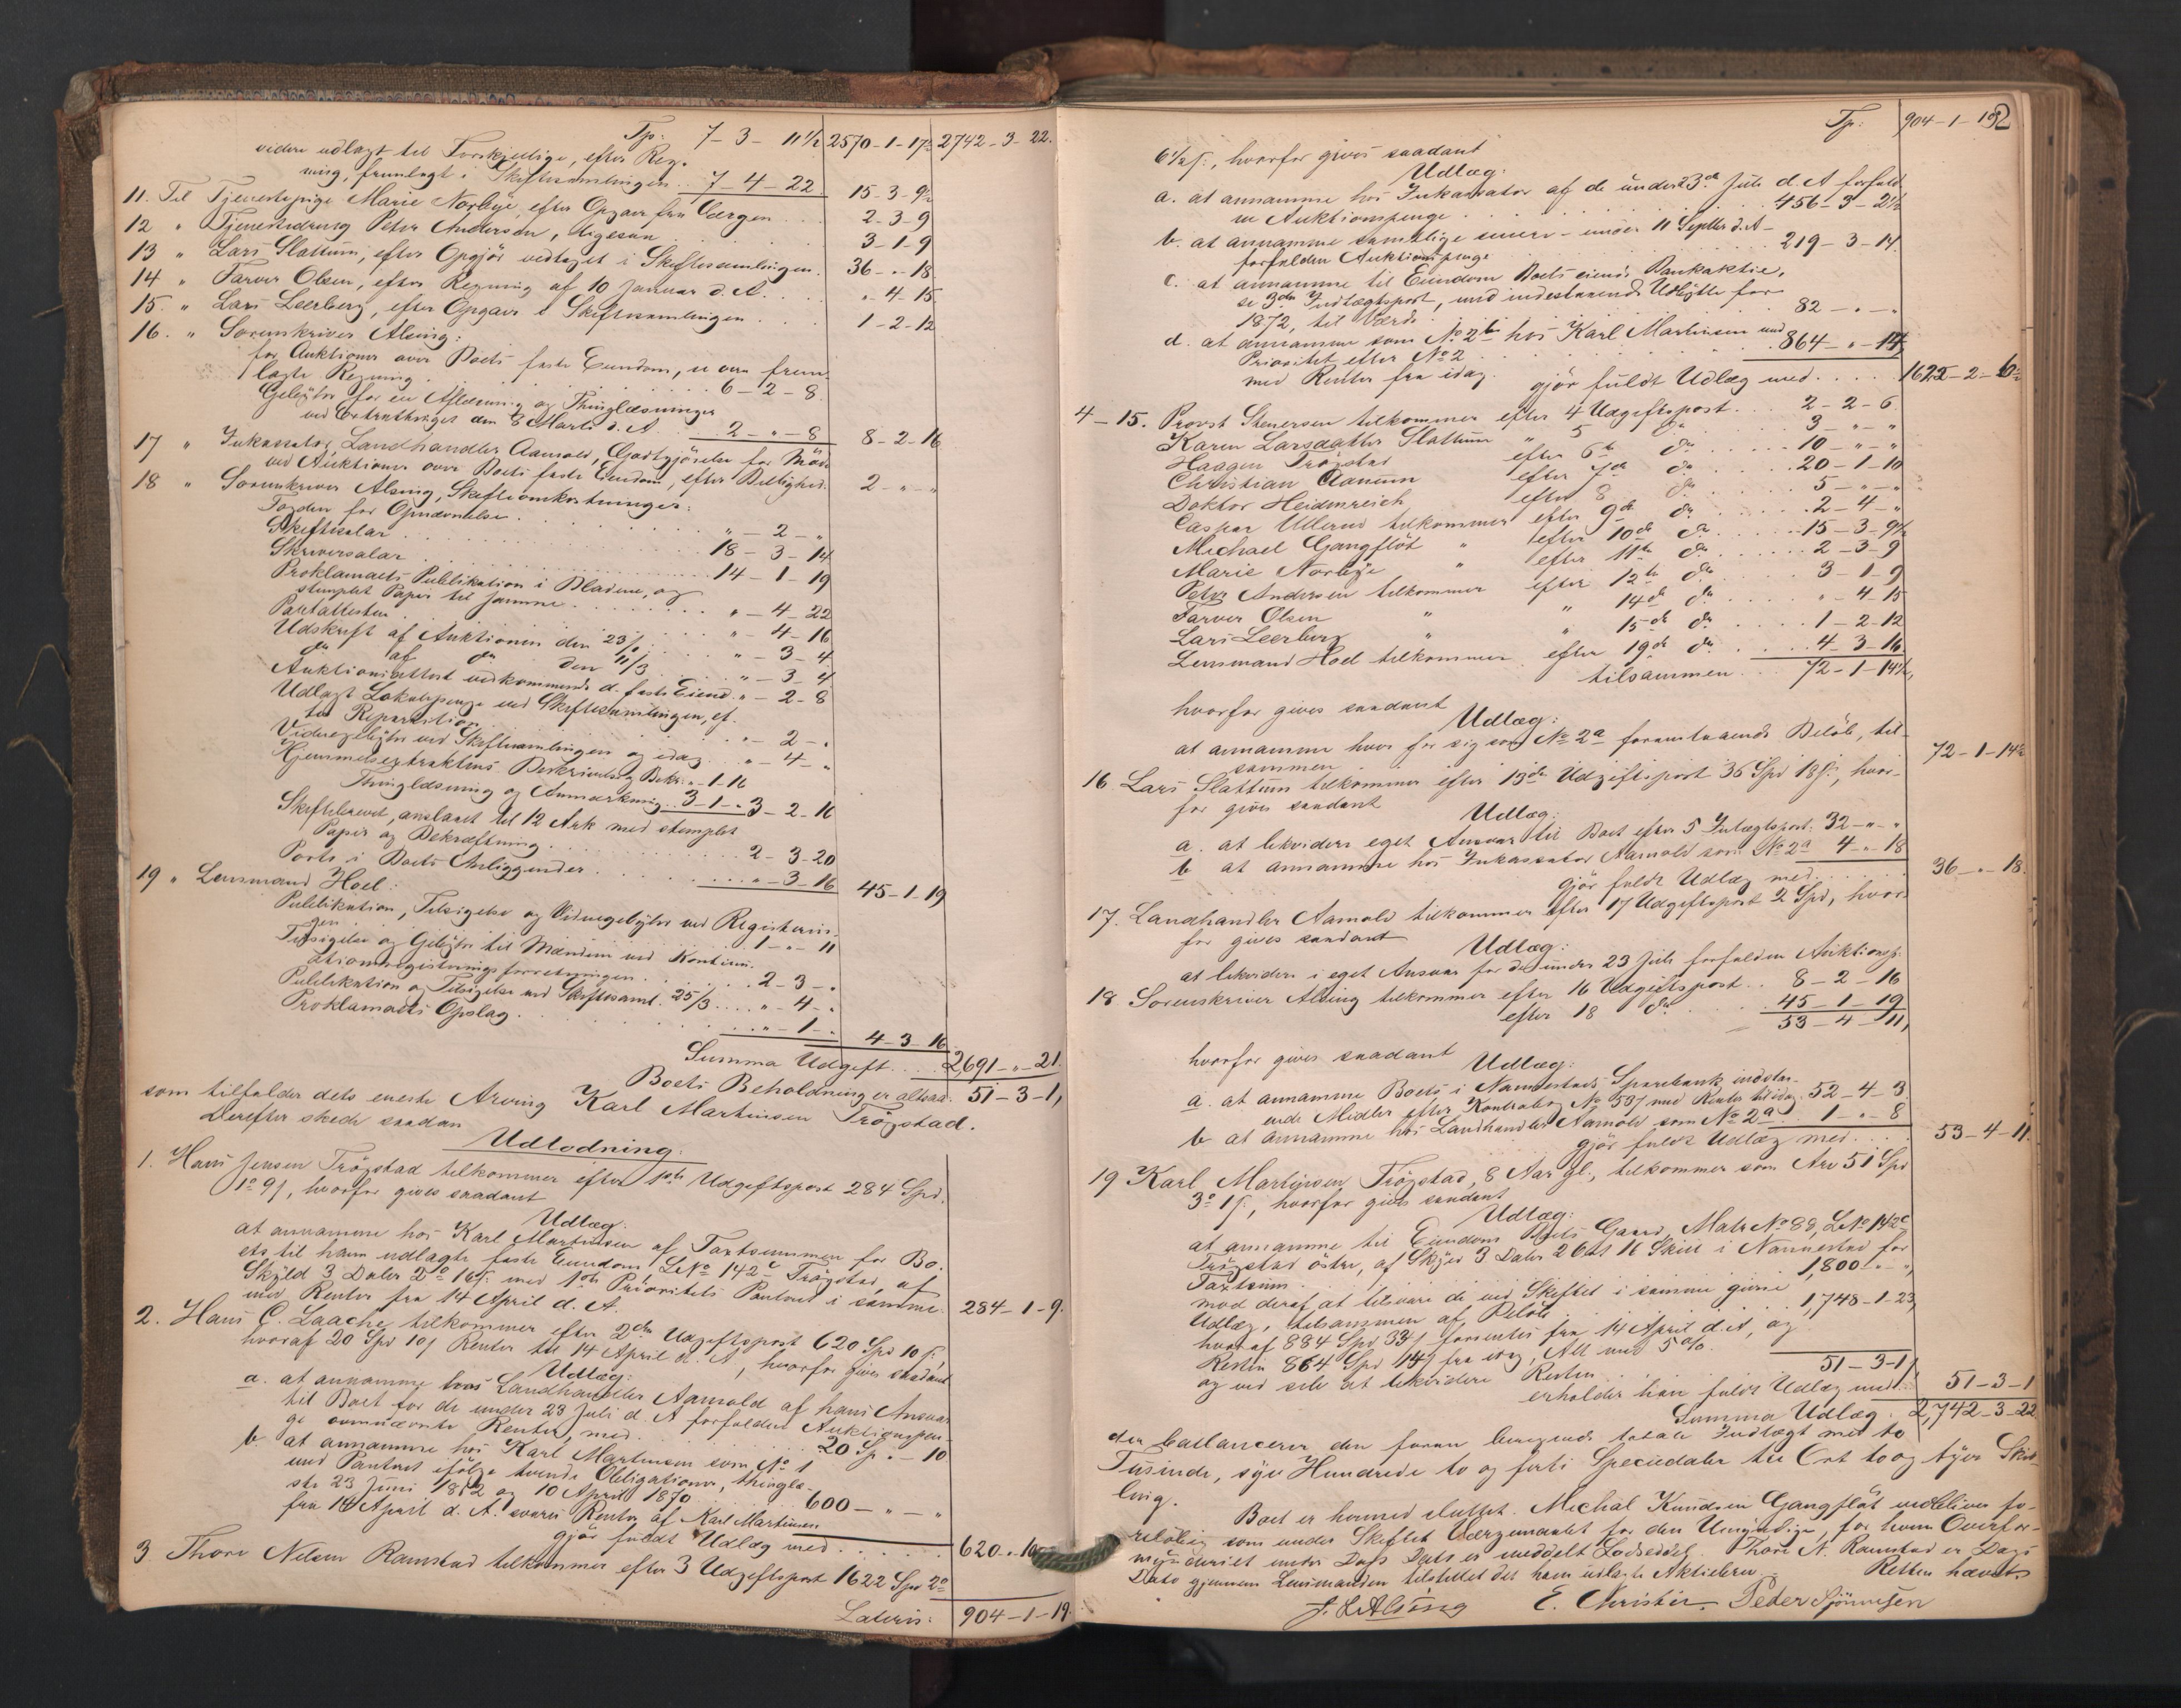 Tp: 7-3-11½ 2570-1-17½ 2742-3-22.
videre udlagt til Forskjellige, efter Reg-
ning, fremlagt i Skiftesamlingen. 7-4-22 15-3-9½
11. Til Tjenestepige Marie Norbye, efter Opgave fra Værgen 2-3-9
12 " Tjenestedreng Peter Andersen, ligesaa 3-1-9
13 " Lars Slattum, efter Opgjör vedtaget i Skiftesamlingen. 36-"-18
14 " Farver Olsen, efter Regning af 10 Januar d. A. "-4-15
15. " Lars Leerberg, efter Opgave i Skiftesamlingen 1-2-12
16. " Sorenskriver Alsing:
for Auktioner over Boets faste Eiendom, se oven frem-
lagte Regning. 6-2-8
Gebyhr for en Aflæsning og Thinglæsninger
ved Extrathinget den 8 Marts d. A. 2-"-8 8-2-16
17 " Inkassator, Landhandler Aamold, Godtgjörelse for Möde
ved Auktioner over Boets faste Eiendom, efter Billighed. 2-"-"
18 " Sorenskriver Alsing, Skifteomkostninger:
Foged for Opnævnelse "-2-"
Skiftesalar 18-3-14
Skriversalar 14-1-19
Proklamaets Publikation i Bladene, og
stemplet Papir til samme "-4-22
Pantattesten "-4-16
Udskrift af Auktionen den 23/1 "-3-4
do af do den 11/3 "-3-4
Auktionsattest vedkommende d. faste Eiend. "-2-8
Udlagt Lokalepenge ved Skiftesamlingen, ef-
ter Repartition "-2-"
Vidnegebyhr ved Skiftesamlingen og idag "-4-"
Hjemmelsextraktens Beskrivelse og Bekr. "-1-16
Thinglæsning og Anmærkning. 3-1-" 3-2-16
Skiftebrevet, anslaaet til 12 Ark med stemplet
Papir og Bekræftning. 2-3-20
Porto i Boets Anliggender. "-3-16 45-1-19
19 " Lensmand Hoel:
Publikation, Tilsigelse og Vidnegebyhr ved Registerin-
gen 1-"-11
Tilsigelse og Gebyhr til Mændene ved Kontinu-
ationsregistreringsforretningen. 2-3-"
Publikation og Tilsigelse ved Skiftesaml. 25/3 "-4-"
Proklamaets Opslag. "-1-" 4-3-16
Summa Udgift 2,691-"-21.
Boets Beholdning er altsaa. 51-3-1,
som tilfalder dets eneste Arving Karl Martinsen Trögstad.
Derefter skede saadan
Udlodning:
1. Hans Jensen Trögstad tilkommer efter 1ste Udgiftspost 284 Spd.
1o 9s, hvorfor gives saadant
Udlæg:
at annamme hos Karl Martinsen af Taxtsummen for Bo-
ets til ham udlagte faste Eiendom LNo 142c Trögstad, af
Skyld 3 Daler 2o 16s. med 1ste Prioritets Panteret i samme
med Renter fra 14 April d. A. 284-1-9.
2. Hans C. Laache, tilkommer efter 2den Udgiftspost 620 Spd 10 s.,
hvoraf 20 Spd 10s Renter til 14 April d. A, hvorfor gives saadant
Udlæg:
a. at annamme hos Landhandler Aamold af hans Ansvar
til Boet for de under 23 Juli d. A forfaldne Auktionspen-
ge ovennævnte Renter, med 20 Sp. "-10
b. at annamme hos Karl Martinsen som No 1
med Panteret ifölge tvende Obligationer, thinglæ-
ste 23 Juni 1862 og 10 April 1870 600-"-"
fra 14 April d. A. svares Renter af Karl Martinsen
gjör fuldt Udlæg med 620."-10
3 Thore Nelsen Ramstad tilkommer efter 3 Udgiftspost 1622 Spd 2o
Lateris: 904-1-19.
Tp: 904-1-19
52
6½s:, hvorfor gives saadant
Udlæg:
a. at annamme hos Inkassator af de under 23de Juli d. A forfald-
ne Auktionspenge 456-3-2½
b. at annamme samtlige senere - under 11 Septbr d. A -
forfaldne Auktionspenge 219-3-14.
c. at annamme til Eiendom Boets eiende Bankaktie,
se 3die Indtægtspost, med indestaaende Udbytte for
1872, til Værdi 82-"-"
d. at annamme som No 2b hos Karl Martinsen med
Prioritet efter No 2 864-"-14,
med Renter fra idag. gjör fuldt Udlæg med 1622-2-6½
4-15. Provst Stenersen tilkommer efter 4 Udgiftspost 2-2-6.
Karen Larsdatter Slattum " 5 do 3-"-"
Haagen Trögstad efter 6te do 10-"-"
Christian Aanum efter 7de do 20-1-10
Doktor Heidenreich efter 8 do 5-"-"
Caspar Ullerud tilkommer efter 9de do 2-4-"
Michael Gangflöt " efter 10de do 15-3-9½
Marie Norbye " efter 11te do 2-3-9
Peter Andersen tilkommer efter 12te do 3-1-9
Farver Olsen " " 14de do "-4-15
Lars Leerberg " " 15de do 1-2-12
Lensmand Hoel tilkommer efter 19de do 4-3-16
tilsammen 72-1-14½,
hvorfor gives saadant
Udlæg:
at annamme hver for sig som No 2a foranstaaende Belöb, til-
sammen 72-1-14½
16 Lars Slattum tilkommer efter 13de Udgiftspost 36 Spd 18s:, hvor-
for gives saadant
Udlæg:
a. at likvidere eget Ansvar til Boet efter 5 Indtægtspost. 32-"-"
b at annamme hos Inkassator Aamold som No 2a 4-"-18
gjör fuldt Udlæg med 36-"-18.
17. Landhandler Aamold tilkommer efter 17 Udgiftspost 2 Spd, hvor-
for gives saadant
Udlæg:
at likvidere i eget Ansvar for de under 23 Juli forfaldne Auktionsp.
18 Sorenskriver Alsing tilkommer efter 16 Udgiftspost 8-2-16
efter 18 do 45-1-19
53-4-11,
hvorfor gives saadant
Udlæg:
a. at annamme Boets i Nannestads Sparebank indsta-
ende Midler efter Kontrabog No 597 med Renter til idag. 52-4-3.
b at annamme hos Landhandler Aamold som No 2a 1-"-8
gjör fuldt Udlæg med 53-4-11.
19 Karl Martinsen Trögstad, 8 Aar gl., tilkommer som Arv 51 Spd
3o 1s:, hvorfor gives saadant
Udlæg:
at annamme til Eiendom Boets Gaard, Matr No 88, LNo 142c
Trögstad östre, af Skyld 3 Daler 2 Ort 16 Skill i Nannestad for
Taxtsum 1,800-"-",
mod deraf at tilsvare de ved Skiftet i samme givne
Udlæg, tilsammen af Belöb 1,748-1-23,
hvoraf 884 Spd 33s forrentes fra 14 April d. A, og
Resten 864 Spd 14s fra idag, Alt med 5 %.
og ved selv at likvidere Resten 51-3-1,
erholder han fuldt Udlæg med 51-3-1
Summa Udlæg 2,742-3-22
der ballancerer den foran beregnede totale Indtægt med to
Tusinde, syv Hundrede to og forti Speciedaler tre Ort to og tyve Skil-
ling.
Boet er hermed sluttet. Michal Knudsen Gangflöt vedbliver fo-
relöbig som under Skiftet Værgemaalet for den Umyndige, for hvem Overfor-
mynderiet under Dags Dato er meddelt Lodseddel. Thore N. Ramstad er Dags
Dato gjennem Lensmanden tilstillet det ham udlagte Aktiebrev. Retten hævet.
J. L. Alsing E. Christie. Peder Sjönnesen